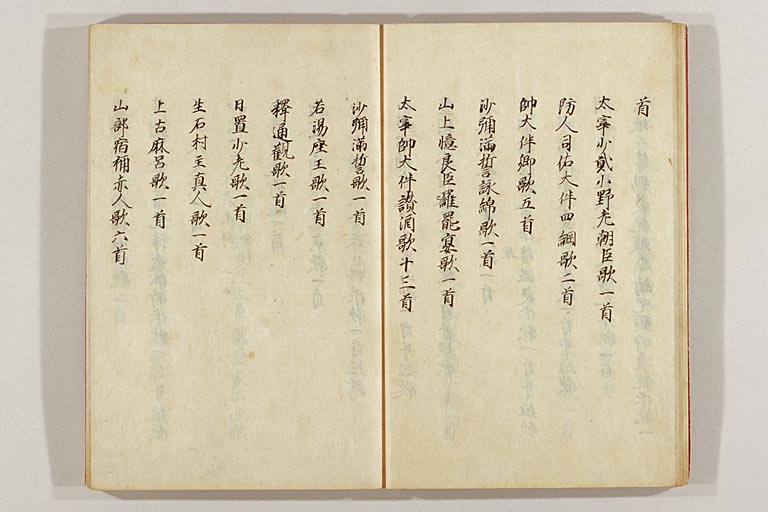 首
太宰少貳小野老朝臣歌一首
防人司佑大伴四綱歌二首
帥大伴卿歌五首
沙弥満誓詠綿歌一首
山上憶良臣罷宴歌一首
太宰帥大伴讃酒歌十三首
沙弥満誓歌一首
若湯座王歌一首
釋通觀歌一首
日置少老歌一首
生石村主真人歌一首
上古麻呂歌一首
山部宿祢赤人歌六首